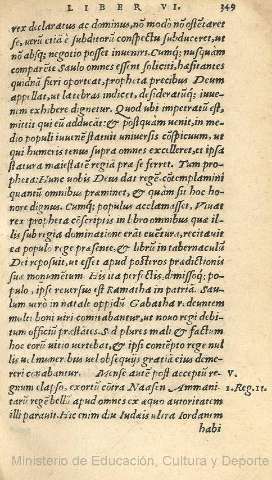 LIBER VI. 349
rex declaratus ac dominus, nō modò nō oſtētaret
ſe, verū citā è ſubditorū conſpectu ſubduceret, ut
nō abſq; negotio poſſet inueniri. Cumq; nuſquam
comparēte Saulo omnes eſſent ſoliciti, hæſitantes
quidnā fieri oporteat, propheta precibus Deum
appellat, ut latebras indicet, deſideratūq; iuue-
nem exhibere dignetur. Quod ubi impetratū eſt,
mittit qui eū adducāt: & poſtquam uenit, in me-
dio populi iuuenē ſtatuit uniuerſis cōſpicuum, ut
qui humeris tenus ſupra omnes excelleret, et ipſa
ſtatura maieſtatē regiā præ ſe ferret. Tum pro-
pheta: Hunc uobis Deus dat regē: cōtemplamini
quantū omnibus præmineat, & quàm ſit hoc ho-
nore dignus. Cumq; populus acclamaſſet, Viuat
rex propheta cōſcriptis in libro omnibus quæ il-
lis ſub regia dominatione erāt euētura, recitauit
ea populo rege præſente, & librū in tabernaculū
Dei repoſuit, ut eſſet apud poſteros prædictionis
ſuæ monumētum. His ita perfectis, dimiſſoq; po-
pulo, ipſe reuerſus eſt Ramatha in patriā. Sau-
lum verò in natale oppidū Gabatha redeuntem
multi boni uiri comitabantur, ut nouo regi debi-
tum officiū præſtarēt. Sed plures mali & factum
hoc eorū uitio vertebāt, & ipſi contēpto rege nul
lis uel muneribus uel obſequijs gratiā eius deme-
reri conabantur. Menſe autē poſt acceptū re- V.
gnum elapſo, exortū cōtra Naaſen Ammani- 1. Reg. 11.
tarū regē bellū apud omnes ei autoritatem
illi parauit. Hic enim diu Iudæis ultra Iordanem
habi
Ministerio de Educación, Cultura y Deporte